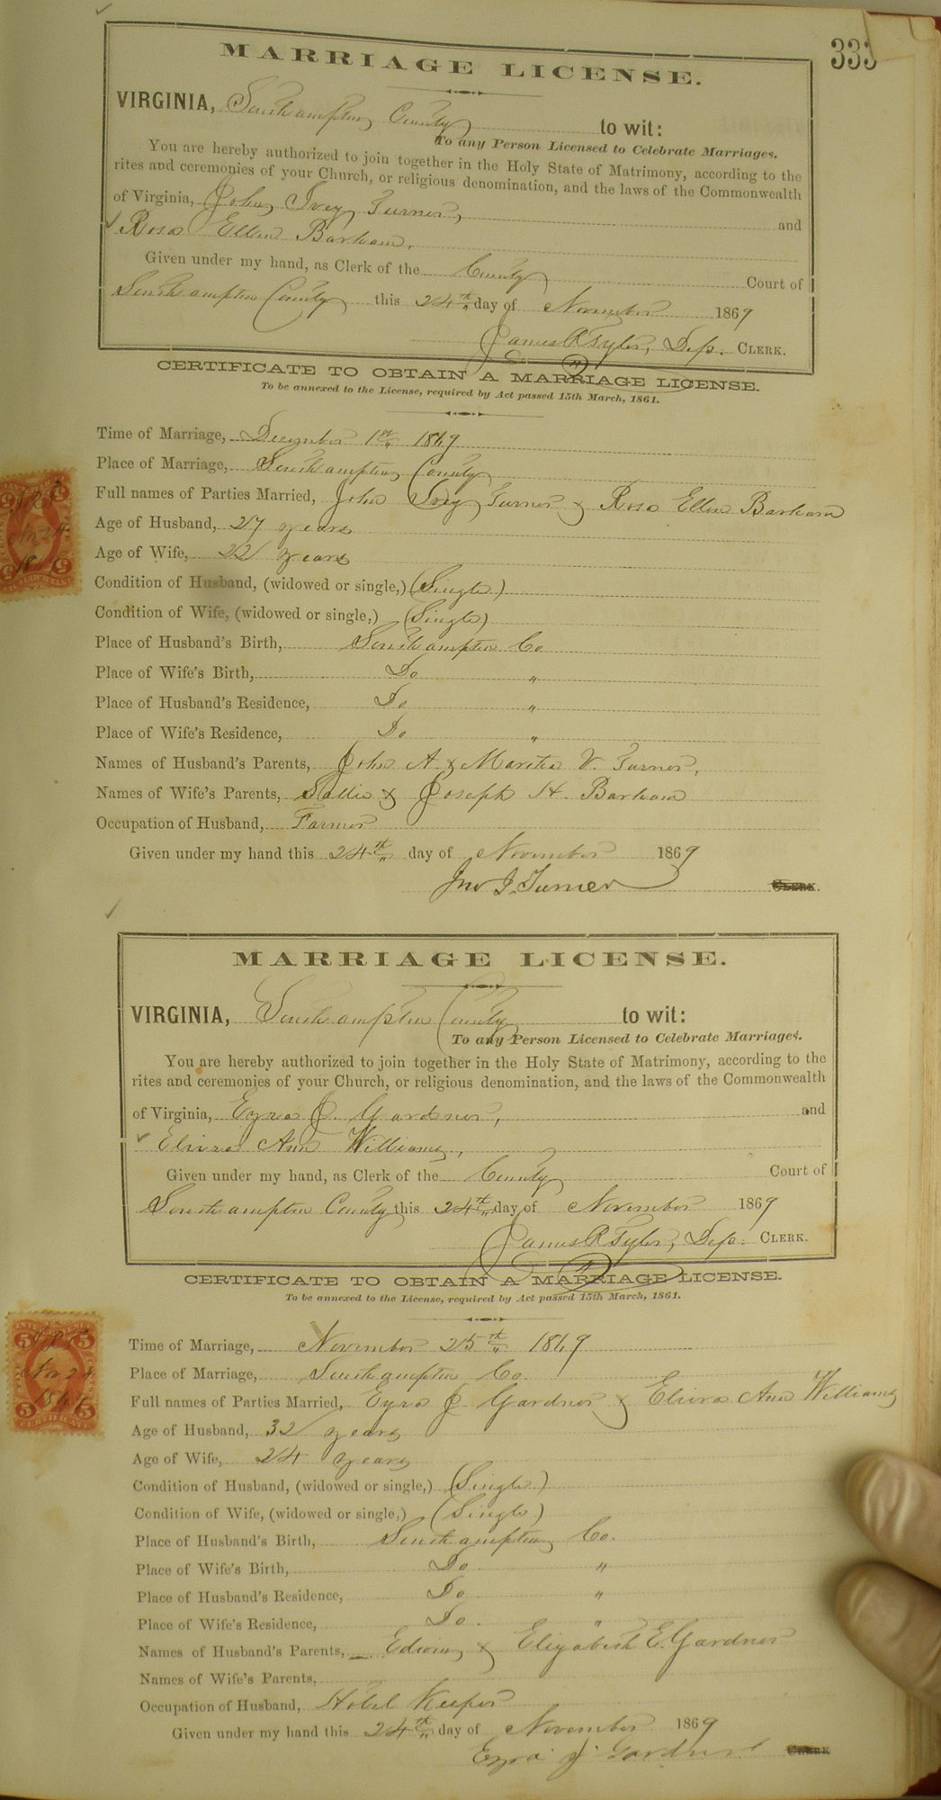 333
MARRIAGE LICENSE.
VIRGINIA, Southampton County to wit:
To any Person Licensed to Celebrate Marriages.
You are hereby authorized to join together in the Holy State of Matrimony, according to the
rites and ceremonies of your Church, or religious denomination, and the laws of the Commonwealth
of Virginia, John Ivey Turner, and
Rosa Ellen Barham.
Given under my hand, as Clerk of the County Court of
Southampton County this 24th day of November 1869
James R Tyler, Dep. CLERK.
CERTIFICATE TO OBTAIN A MARRIAGE LICENSE.
To be annexed to the License, required by Act passed 15th March, 1861.
Time of Marriage, December 1st 1869
Place of Marriage, Southampton County
Full names of Parties Married, John Ivey Turner & Rosa Ellen Barham
Age of Husband, 27 years
Age of Wife, 22 years
Condition of Husband, (widowed or single,) (Single)
Condition of Wife, (widowed or single,) (Single)
Place of Husband's Birth, Southampton Co
Place of Wife's Birth, Do "
Place of Husband's Residence, Do "
Place of Wife's Residence, Do "
Names of Husband's Parents, John A. & Martha V. Turner,
Names of Wife's Parents, Sallie & Joseph H. Barham
Occupation of Husband, Farmer
Given under my hand this 24th day of November 1869
Jno I. Turner CLERK.
MARRIAGE LICENSE.
VIRGINIA, Southampton County to wit:
To any Person Licensed to Celebrate Marriages.
You are hereby authorized to join together in the Holy State of Matrimony, according to the
rites and ceremonies of your Church, or religious denomination, and the laws of the Commonwealth
of Virginia, Ezra J. Gardner, and
Elvira Ann Williams,
Given under my hand, as Clerk of the County Court of
Southampton County this 24th day of November 1869
James R Tyler, Dep. CLERK.
CERTIFICATE TO OBTAIN A MARRIAGE LICENSE.
To be annexed to the License, required by Act passed 15th March, 1861.
Time of Marriage, November 25th 1869
Place of Marriage, Southampton Co.
Full names of Parties Married, Ezra J. Gardner & Elvira Ann Williams
Age of Husband, 32 years
Age of Wife, 24 years
Condition of Husband, (widowed or single,) (Single)
Condition of Wife, (widowed or single,) (Single)
Place of Husband's Birth, Southampton Co.
Place of Wife's Birth, Do "
Place of Husband's Residence, Do "
Place of Wife's Residence, Do. "
Names of Husband's Parents, Edwin & Elizabeth E. Gardner
Names of Wife's Parents,
Occupation of Husband, Hotel Keeper
Given under my hand this 24th day of November 1869
Ezra J Gardner CLERK